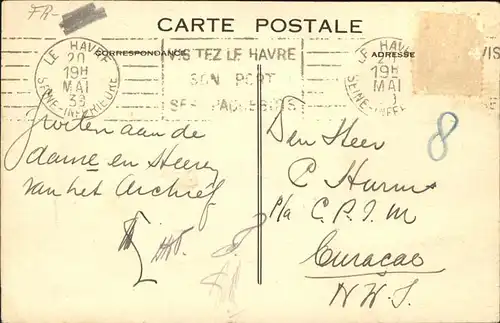 FR-
CARTE POSTALE
CORRESPONDANCE
ADRESSE
LE HAVRE
20
19H
MAI
38
SEINE-INFERIEURE
VISITEZ LE HAVRE
SON PORT
SES PAQUEBOTS
LE HAVRE
19H
MAI
SEINE-INFER
VIS
Groeten aan de
dame en Heeren
van het Archief
Den Heer
8
p/a C.P.I.M
Curaçao
N.W.I.